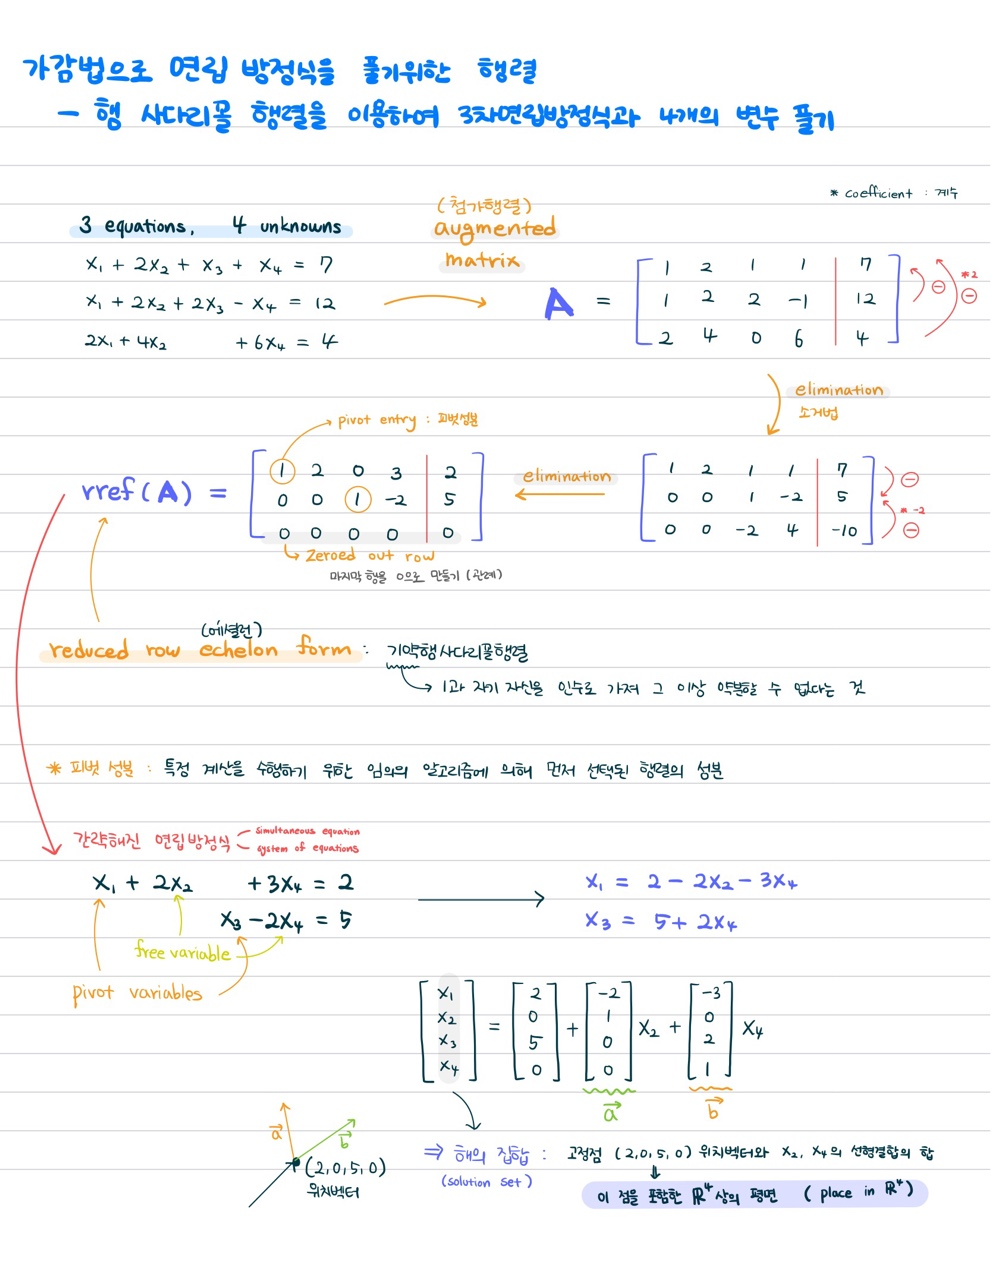 가감법으로 연립 방정식을 풀기위한 행렬
- 행 사다리꼴 행렬을 이용하여 3차연립방정식과 4개의 변수 풀기
* coefficient : 계수
3 equations, 4 unknowns
x₁ + 2x₂ + x₃ + x₄ = 7
x₁ + 2x₂ + 2x₃ - x₄ = 12
2x₁ + 4x₂ + 6x₄ = 4
(첨가행렬)
augmented
matrix
A =
1 2 1 1 | 7
1 2 2 -1 | 12
2 4 0 6 | 4
⊖
*2
⊖
elimination
소거법
1 2 1 1 | 7
0 0 1 -2 | 5
0 0 -2 4 | -10
⊖
* -2
⊖
elimination
pivot entry : 피벗성분
rref(A) =
1 2 0 3 | 2
0 0 1 -2 | 5
0 0 0 0 | 0
Zeroed out row
마지막 행을 0으로 만들기 (관례)
(에셜런)
reduced row echelon form : 기약행사다리꼴행렬
1과 자기 자신을 인수로 가져 그 이상 약분할 수 없다는 것
* 피벗 성분 : 특정 계산을 수행하기 위한 임의의 알고리즘에 의해 먼저 선택된 행렬의 성분
간략해진 연립방정식
simultaneous equation
system of equations
x₁ + 2x₂ + 3x₄ = 2
x₃ - 2x₄ = 5
free variable
pivot variables
x₁ = 2 - 2x₂ - 3x₄
x₃ = 5 + 2x₄
[x₁ x₂ x₃ x₄] = [2 0 5 0] + [-2 1 0 0] x₂ + [-3 0 2 1] x₄
a⃗
b⃗
a⃗
b⃗
(2,0,5,0)
위치벡터
⇒ 해의 집합 : 고정점 (2,0,5,0) 위치벡터와 x₂, x₄의 선형결합의 합
(solution set)
이 점을 포함한 ℝ⁴상의 평면 (place in ℝ⁴)